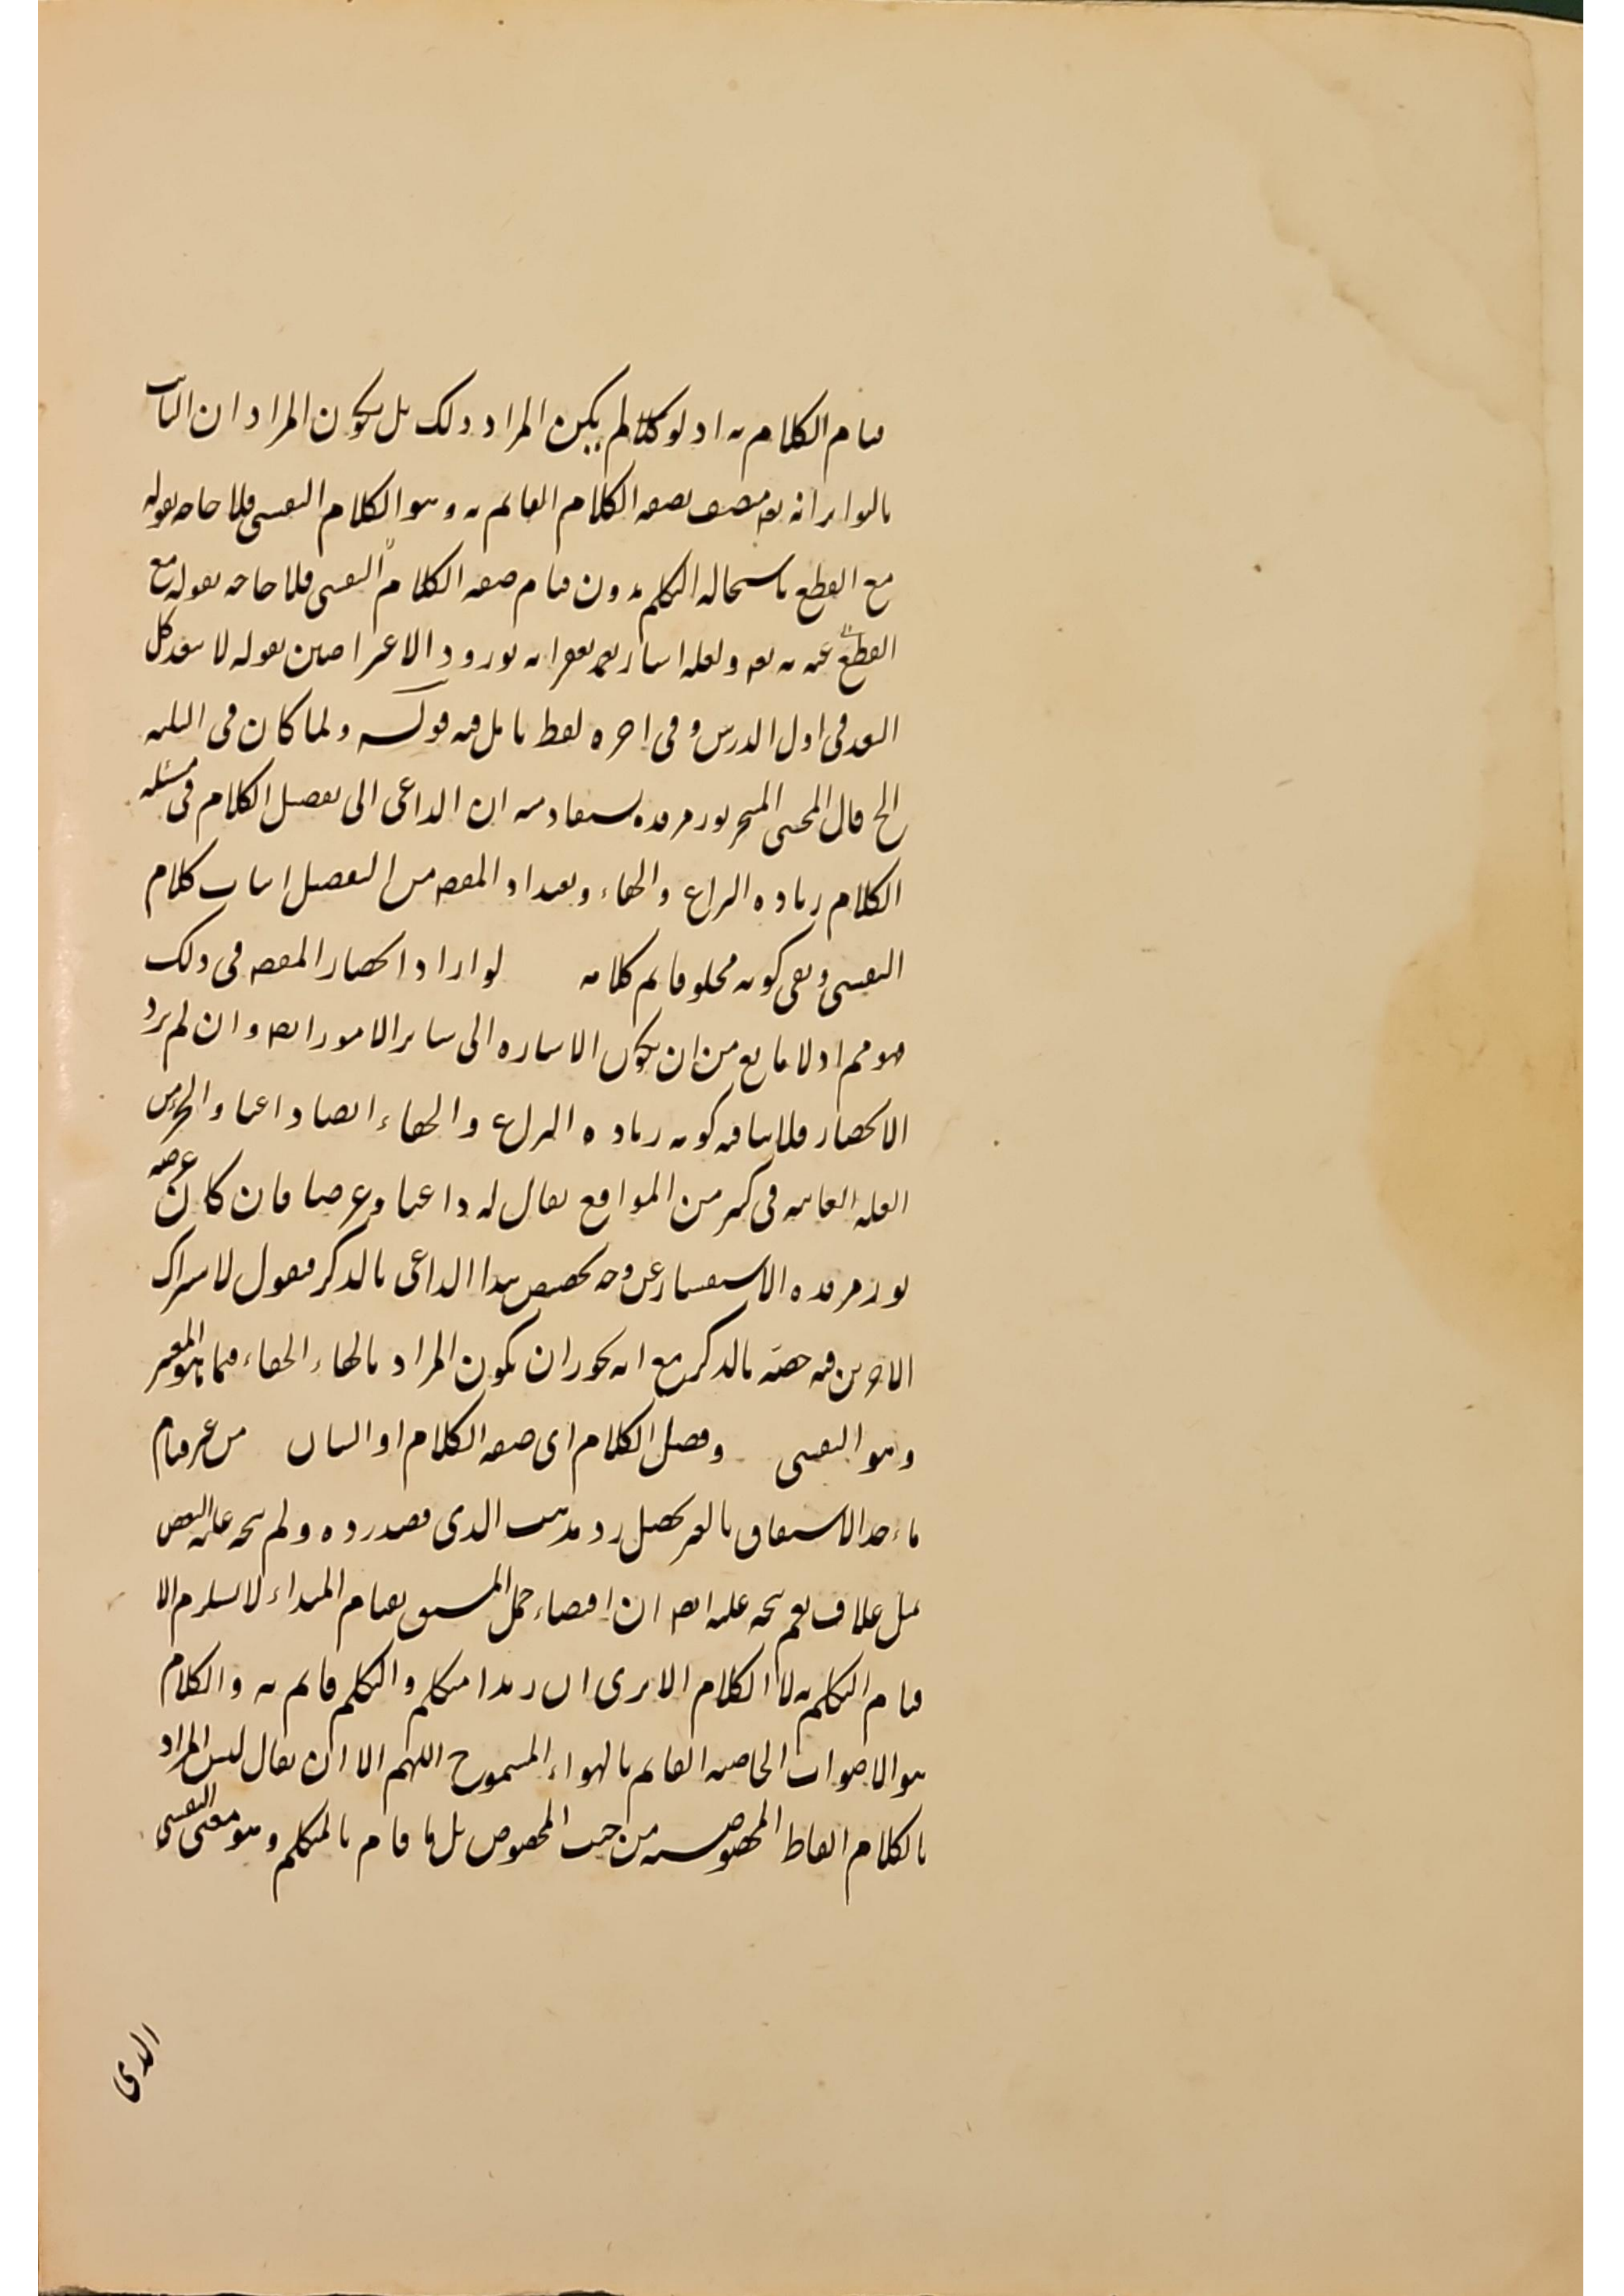 قيام الكلام به اذ لو كلا لم يكن المراد ذلك بل يكون المراد ان الثابت
بالتواتر انه تعه متصف بصفه الكلام القايم به وهو الكلام النفسى فلا حاجه بقوله
مع القطع باستحاله التكلم بدون قيام صفه الكلام النفسى فلا حاجه بقوله مع
القطع عنه به تعه ولعله اشار بورود الاعتراضين بقوله لا بعد كل
البعد فى اول الدرس وفى اخره لفظ تامل فيه قوله ولما كان فى الثلثه
الخ قال المحشى نور مرقده يستفاد منه ان الداعى الى تفصيل الكلام فى مسئله
الكلام زياده النزاع والخفاء وتعداد المقصه من التفصيل اثبات كلام
النفسى ونفى كونه مخلوقا ثم كلامه لو اراد انحصار المقصه فى ذلك
فهو مم اذ لا مانع من ان يكون الاشاره الى ساير الامور ايضه وان لم يرد
الانحصار فلا ينافيه كونه زياده النزاع والخفاء ايضا داعيا والجزء من
العله الغائيه فى كثير من المواقع يقال له داعيا وغرضا فان كان غرضه
نور مرقده الاستفسار عن وجه تخصيص هذا الداعى بالذكر فنقول لاشتراك
الاخرين فيه خصه بالذكر مع انه يجوز ان يكون المراد بالخفاء الخفاء فيما هو المعتبر
وهو النفسى وفصل الكلام اى صفه الكلام او البيان من غير قيام
ماخذ الاشتقاق بالغير يحصل رد مذهب الذى قصد رده ولم يتجه عليه النقض
بمثل علاف نعم يتجه عليه ايضه ان اقتضاء حمل المشتق بقيام المبداء لا يستلزم الا
قيام التكلم به لا الكلام الا يرى ان زيدا متكلم والتكلم قايم به والكلام
هو الاصوات الخاصه القايم بالهواء المتموج اللهم الا ان يقال ليس المراد
بالكلام الفاظ المخصوصه من حيث المخصوص بل ما قام بالمتكلم وهو معنى النفسى
الذى